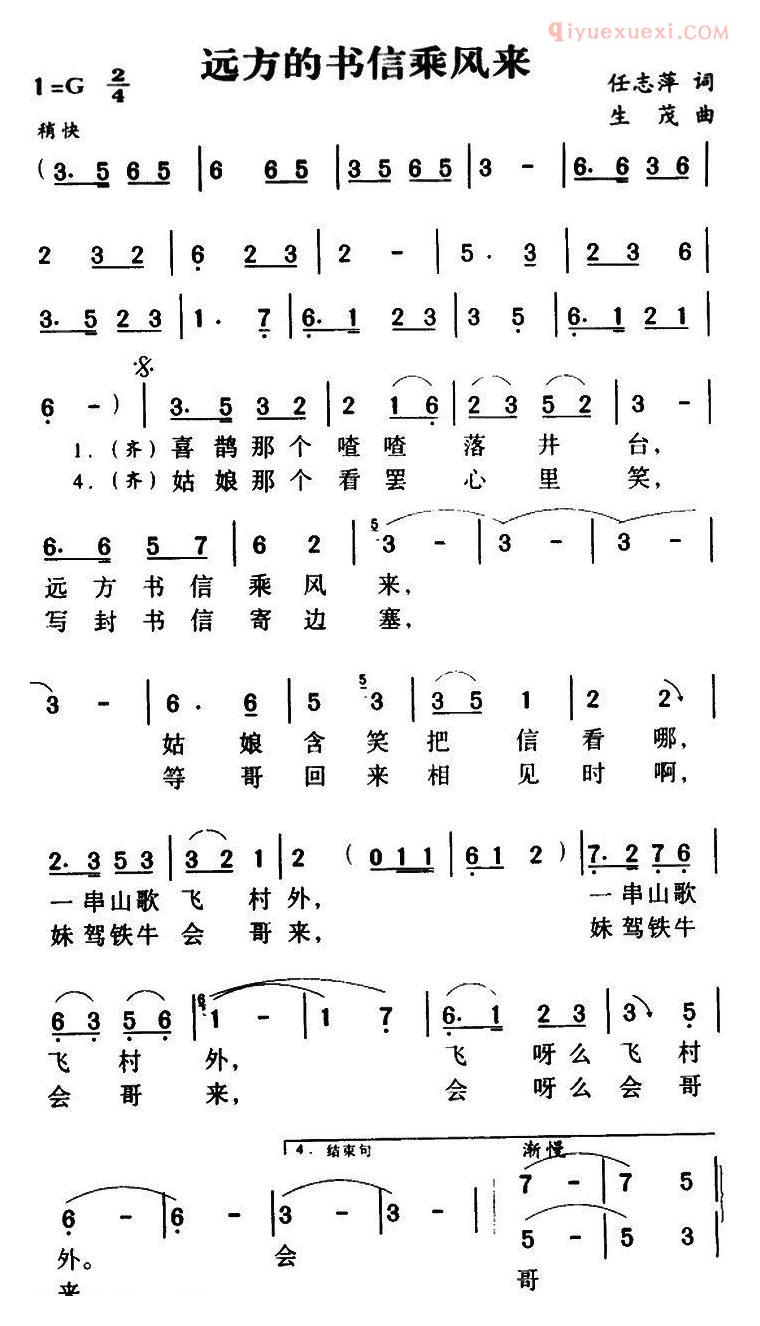 qiyuexuexi.com
远方的书信乘风来
1=G 2/4
任志萍 词
生 茂 曲
稍快
(3. 5 6 5 | 6 6 5 | 3 5 6 5 | 3 - | 6. 6 3 6 |
2 3 2 | 6 2 3 | 2 - | 5 . 3 | 2 3 6 |
3. 5 2 3 | 1 . 7 | 6. 1 2 3 | 3 5 | 6. 1 2 1 |
6 - ) | 3. 5 3 2 | 2 1 6 | 2 3 5 2 | 3 - |
1.(齐)喜鹊那个喳喳 落 井 台,
4.(齐)姑娘那个看罢 心 里 笑,
6. 6 5 7 | 6 2 | 5 3 - | 3 - | 3 - |
远方书信乘风来,
写封书信寄边塞,
3 - | 6 . 6 | 5 5 3 | 3 5 1 | 2 2 |
姑 娘 含 笑 把 信 看 哪,
等 哥 回 来 相 见 时 啊,
2. 3 5 3 | 3 2 1 | 2 ( 0 1 1 | 6 1 2 ) | 7. 2 7 6 |
一串山歌 飞 村 外, 一串山歌
妹驾铁牛 会 哥 来, 妹驾铁牛
6 3 5 6 | 6 1 - | 1 7 | 6. 1 2 3 | 3 5 |
飞 村 外, 飞 呀么飞村
会 哥 来, 会 呀么会哥
4. 结束句 渐慢
6 - | 6 - | 3 - | 3 - | 7 - | 7 5 |
5 - | 5 3 |
外。 会
来 哥